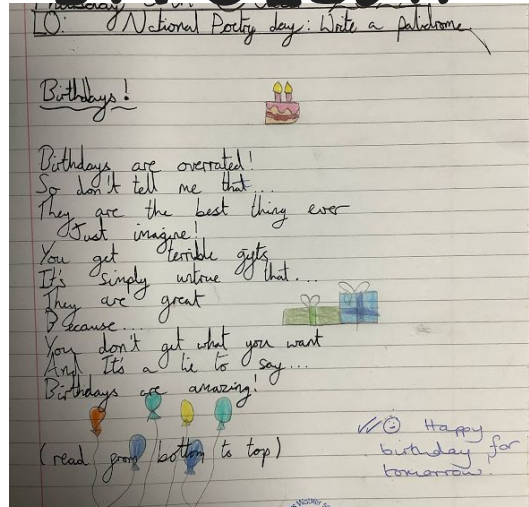 LO: National Poetry day: Write a palidrome
Birthdays!
Birthdays are overrated!
So don't tell me that...
They are the best thing ever
Just imagine!
You get terrible gifts
It's simply untrue that...
They are great
Because...
You don't get what you want
And It's a lie to say...
Birthdays are amazing!
(read from bottom to top)
Happy
birthday for
tomorrow!